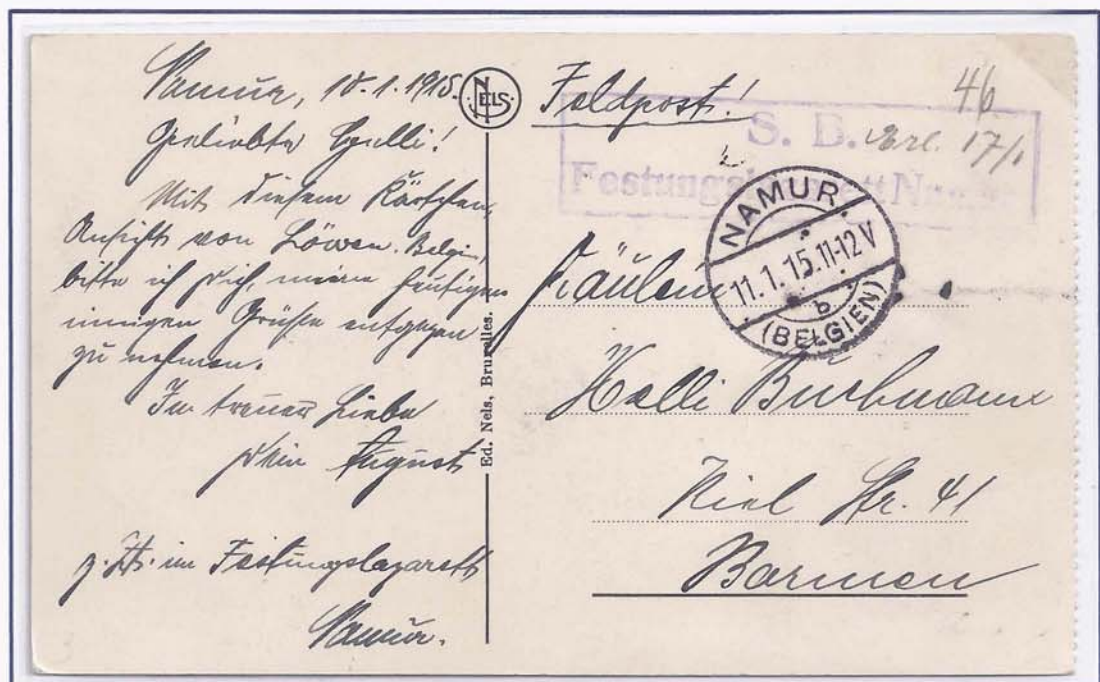 Namur, 10.1.1915.
Geliebte Helli!
Mit diesem Kärtchen,
Ansicht von Löwen. Belgien,
bitte ich Dich, meine heutigen
innigen Grüße entgegen
zu nehmen.
In treuer Liebe
Dein August
z. Zt. im Festungslazarett
Namur.
NELS
Ed. Nels, Bruxelles.
Feldpost!
46
S. B.
17/1
Festungslazarett Namur
NAMUR.
11.1.15.11-12V
b
(BELGIEN)
Fräulein
Helli Buchmann
Kiel Str. 41
Barmen